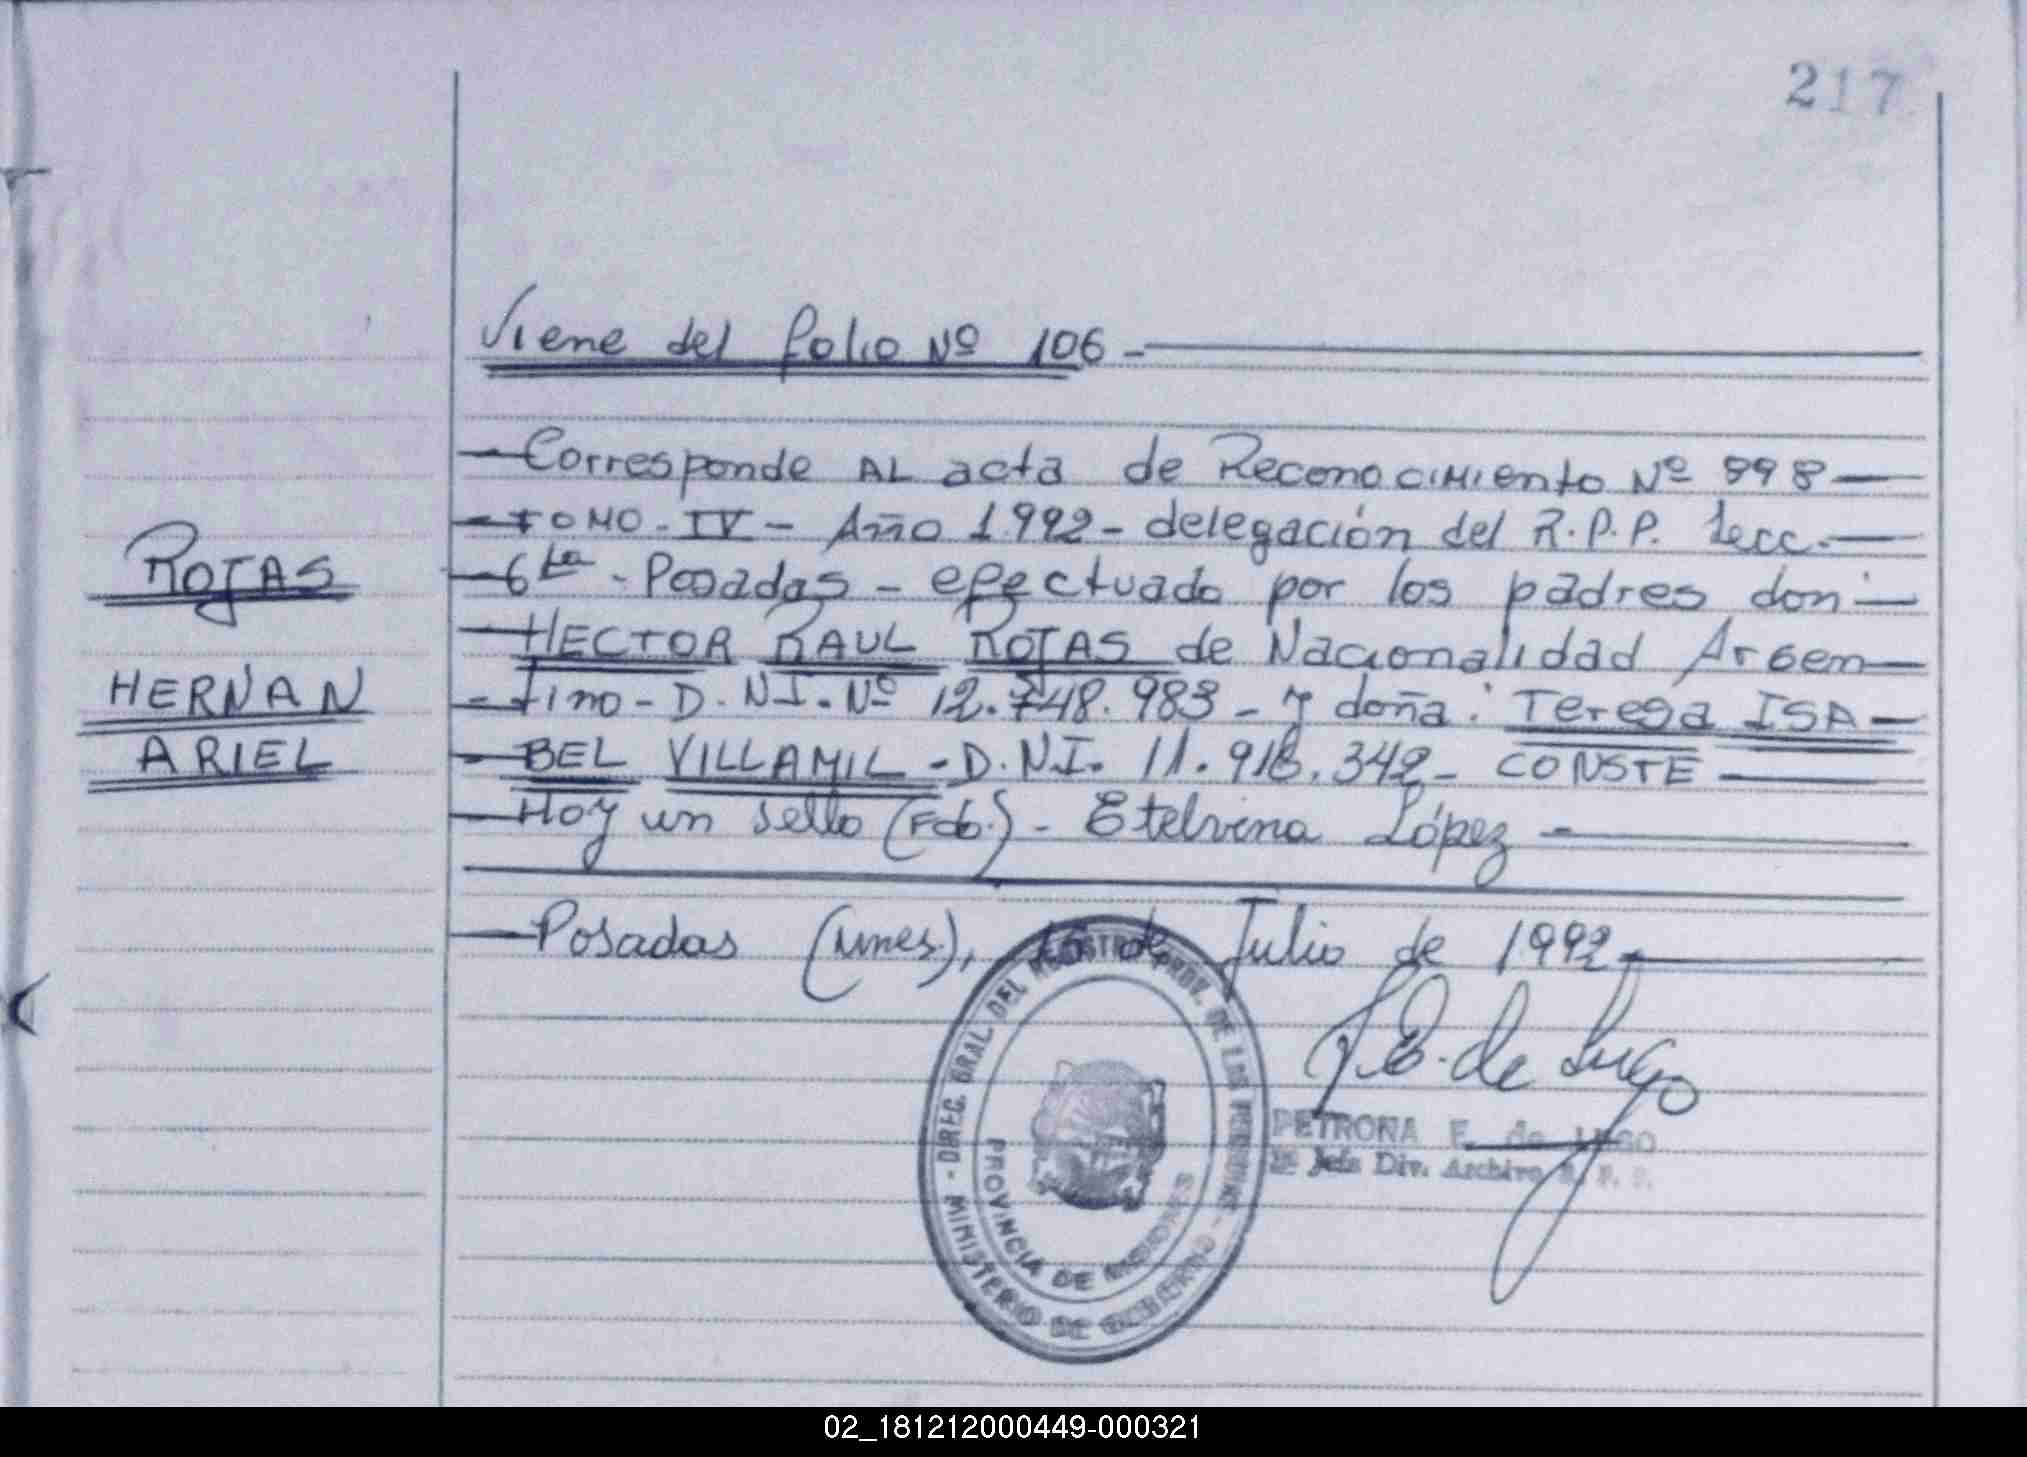 217
Viene del folio Nº 106 -
Corresponde AL acta de Reconocimiento Nº 998
TOMO - IV - Año 1.992 - delegación del R.P.P. Secc.
ROJAS
6ta - Posadas - efectuado por los padres don
HECTOR RAUL ROJAS de Nacionalidad Argen
HERNAN
tino - D.N.I. Nº 12.748.983 - y doña: Teresa ISA
ARIEL
BEL VILLAMIL - D.N.I. 11.916.342 - CONSTE
Hoy un sello (Fdo.) - Etelvina López -
Posadas (Mnes.), 16 de Julio de 1992.
P.E. de Lugo
PETRONA E. de LUGO
Jefe Div. Archivo R. P. P.
MINISTERIO DE GOBIERNO - DIREC. GRAL DEL REGISTRO PROV. DE LAS PERSONAS -
PROVINCIA DE MISIONES
02_181212000449-000321